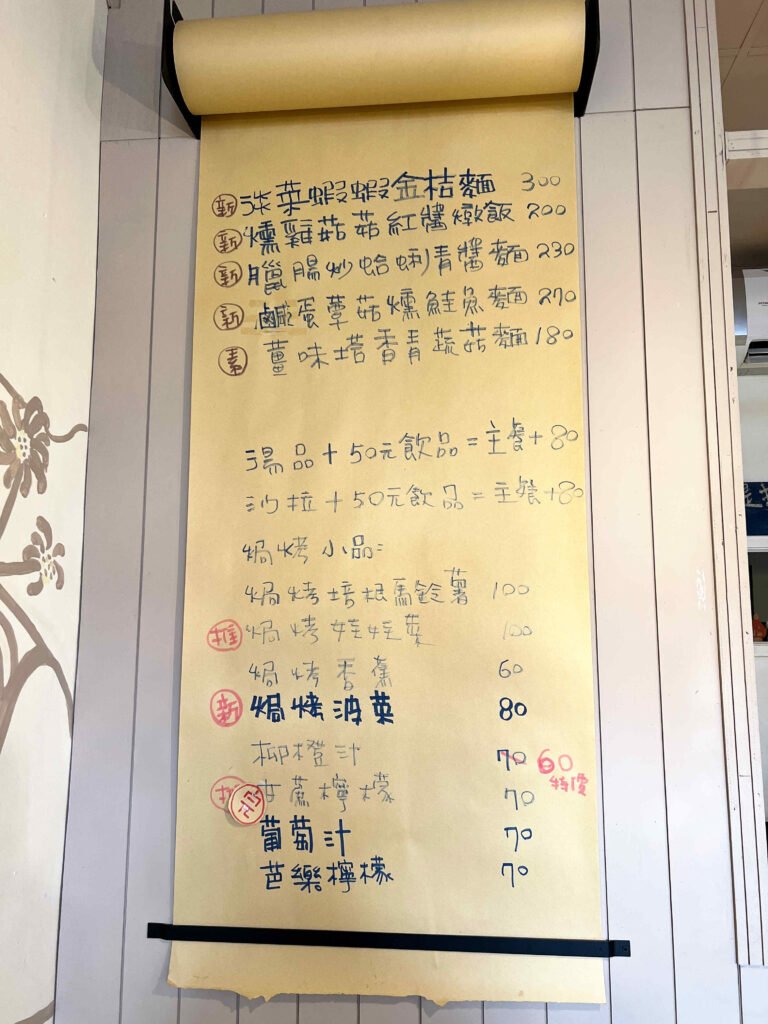 新 淡菜蝦蝦金桔麵 300
新 燻雞菇菇紅醬燉飯 200
新 臘腸炒蛤蜊青醬麵 230
新 鹹蛋蕈菇燻鮭魚麵 270
素 薑味塔香青蔬菇麵 180
湯品+50元飲品=主餐+80
沙拉+50元飲品=主餐+80
焗烤小品:
焗烤培根馬鈴薯 100
推 焗烤娃娃菜 100
焗烤香蕉 60
新 焗烤波菜 80
柳橙汁 70 60
特價
甘蔗檸檬 70
葡萄汁 70
芭樂檸檬 70